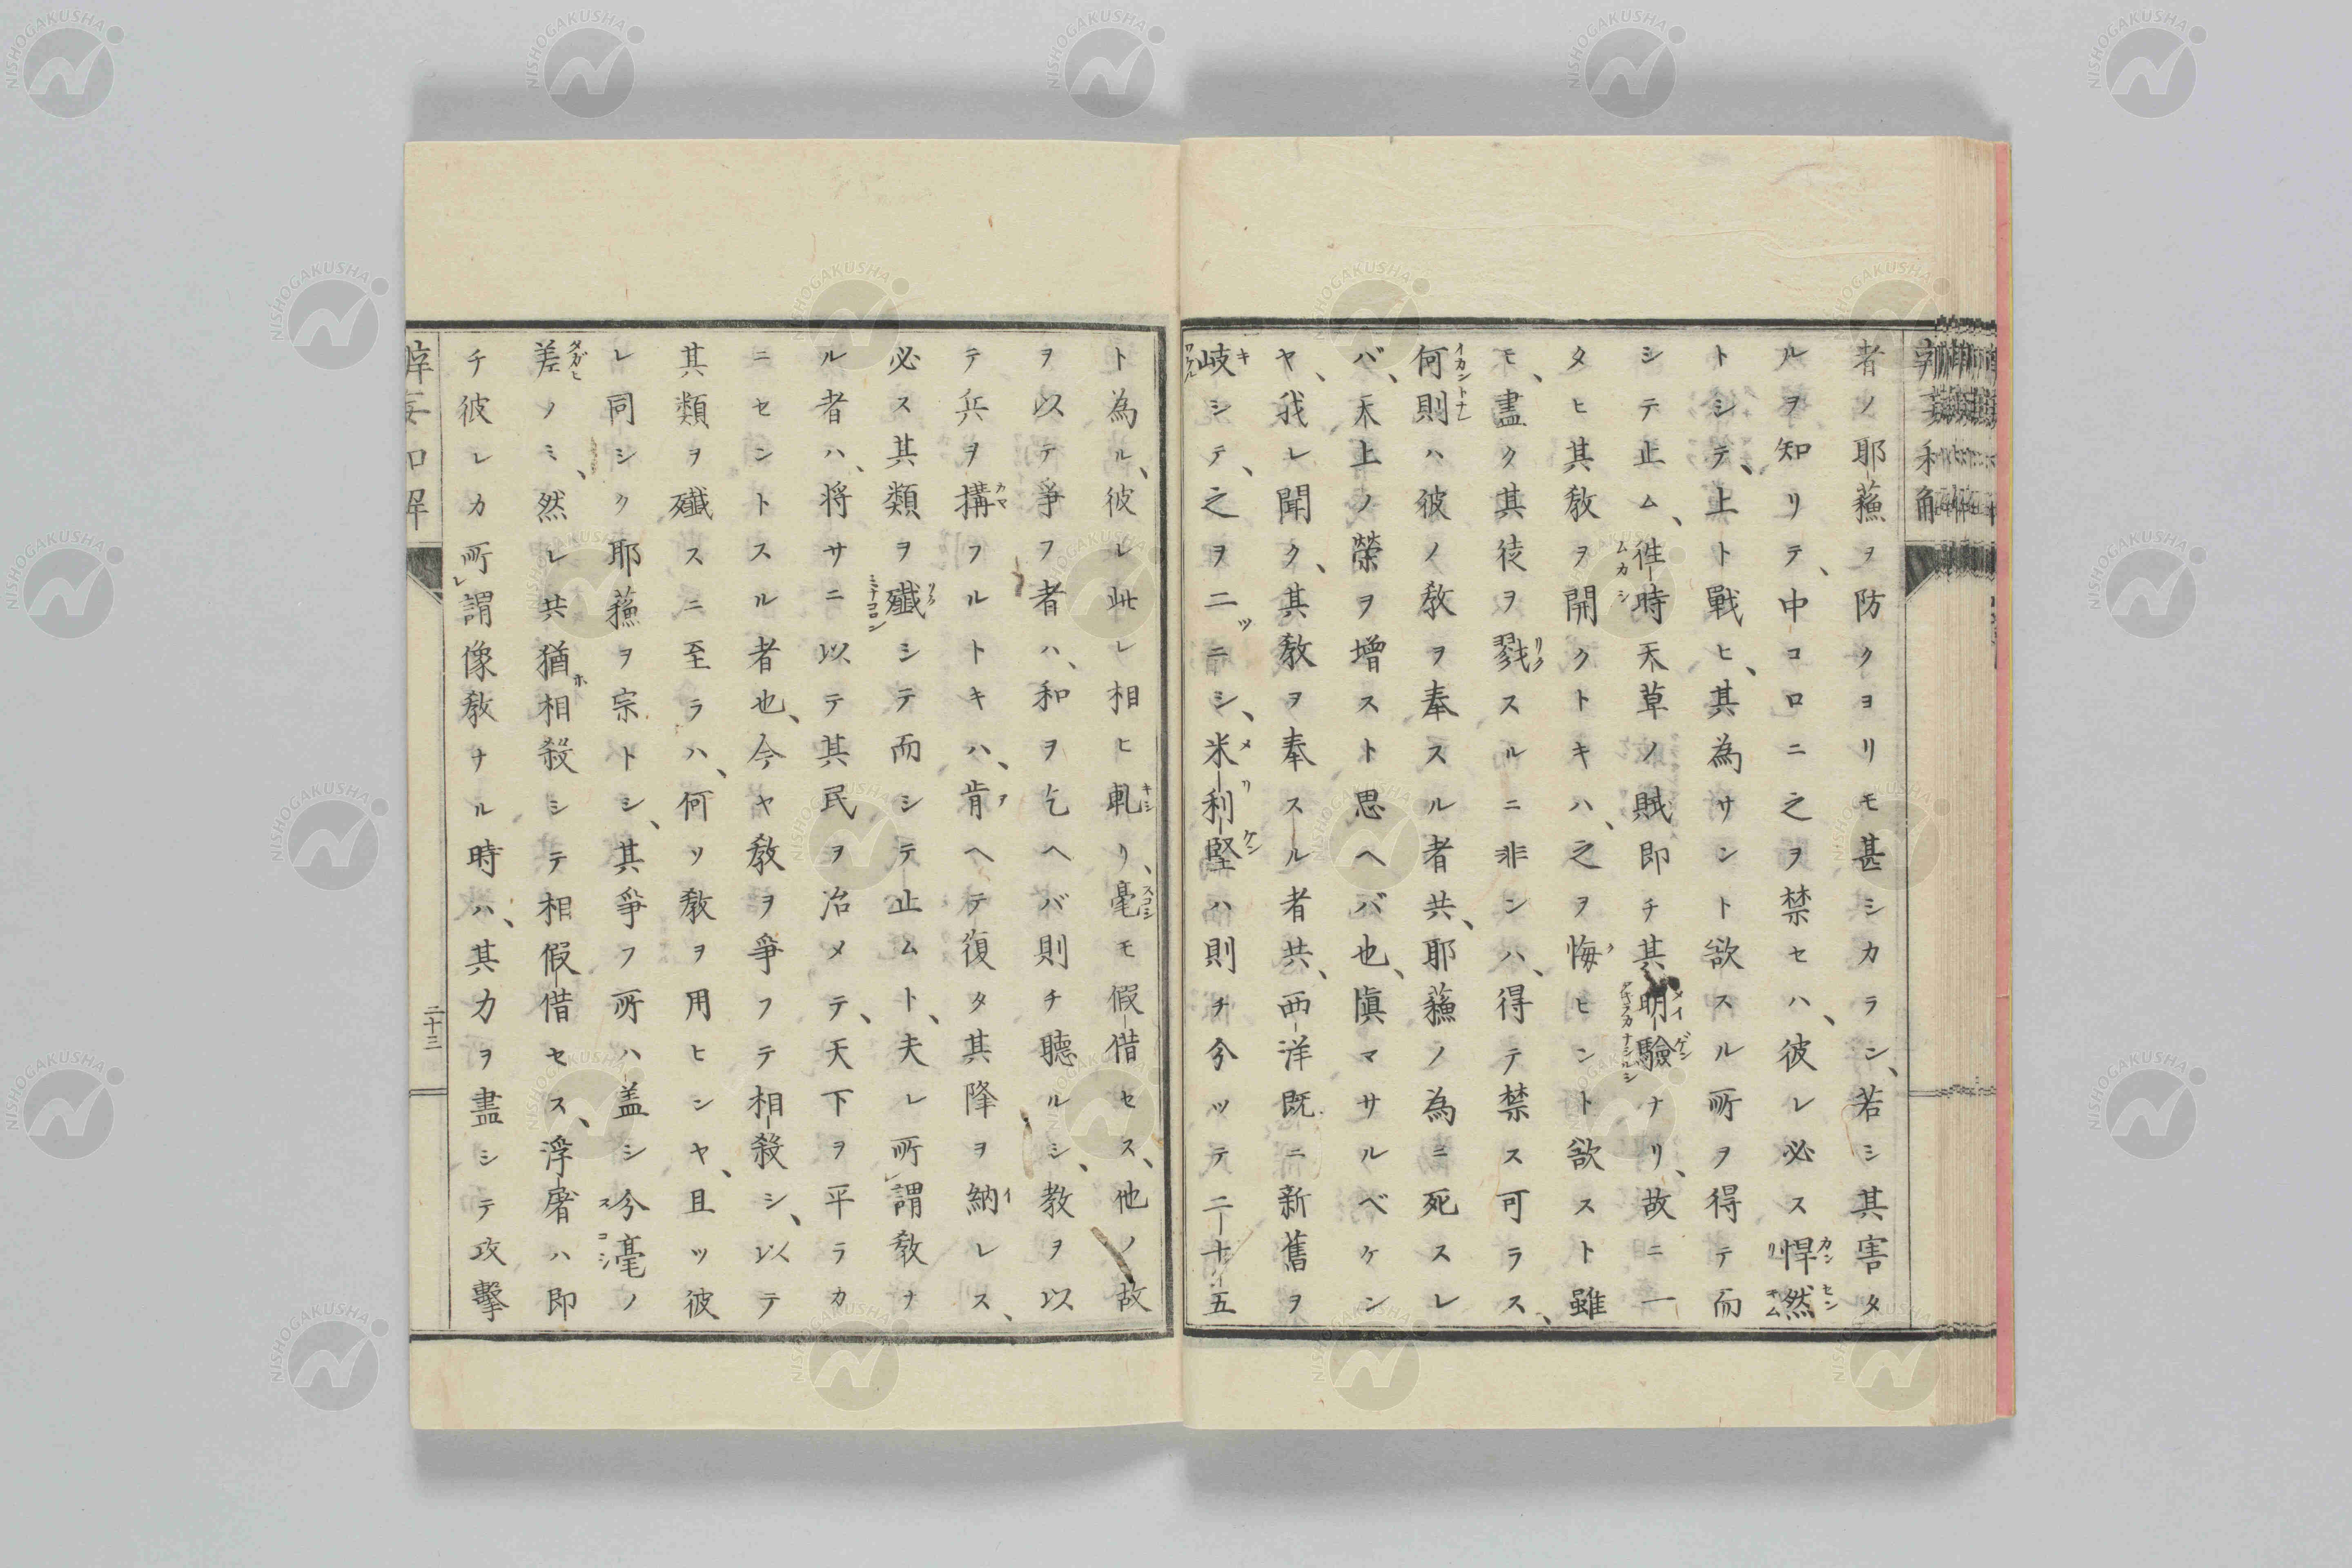 者ノ耶蘓ヲ防クヨリモ甚シカラン、若シ其害タ
ルヲ知リテ、中コロニ之ヲ禁セハ、彼レ必ス悍然
トシテ、上ト戰ヒ、其為サント欲スル所ヲ得テ而
シテ止ム、徃時天草ノ賊即チ其明驗ナリ、故ニ一
タヒ其敎ヲ開クトキハ、之ヲ悔ヒント欲スト雖
モ、盡ク其徒ヲ戮スルニ非ンハ、得テ禁ス可ラス、
何則ハ彼ノ敎ヲ奉スル者共、耶蘓ノ為ニ死スレ
バ、天上ノ榮ヲ増スト思ヘバ也、眞マサルベケン
ヤ、我レ聞ク、其敎ヲ奉スル者共、西洋既ニ新舊ヲ
岐シテ、之ヲ二ツニシ、米利堅ハ則チ分ツテ二十五
ト為ル、彼レ此レ相ヒ軋リ、毫モ假借セス、他ノ故
ヲ以テ爭フ者ハ、和ヲ乞ヘバ則チ聴ルシ、教ヲ以
テ兵ヲ搆フルトキハ、肯ヘテ復タ其降ヲ納レス、
必ス其類ヲ殲シテ而シテ止ムト、夫レ所謂敎ナ
ル者ハ、将サニ以テ其民ヲ治メテ、天下ヲ平ラカ
ニセントスル者也、今ヤ敎ヲ爭フテ相殺シ、以テ
其類ヲ殲スニ至ラハ、何ソ敎ヲ用ヒンヤ、且ツ彼
レ同シク耶蘓ヲ宗トシ、其爭フ所ハ盖シ今毫ノ
差ノミ、然レ共猶相殺シテ相假借セス、浮屠ハ即
チ彼レカ所謂像敎ナル時ハ、其力ヲ盡シテ攻擊
二十三
NISHOGAKUSHA